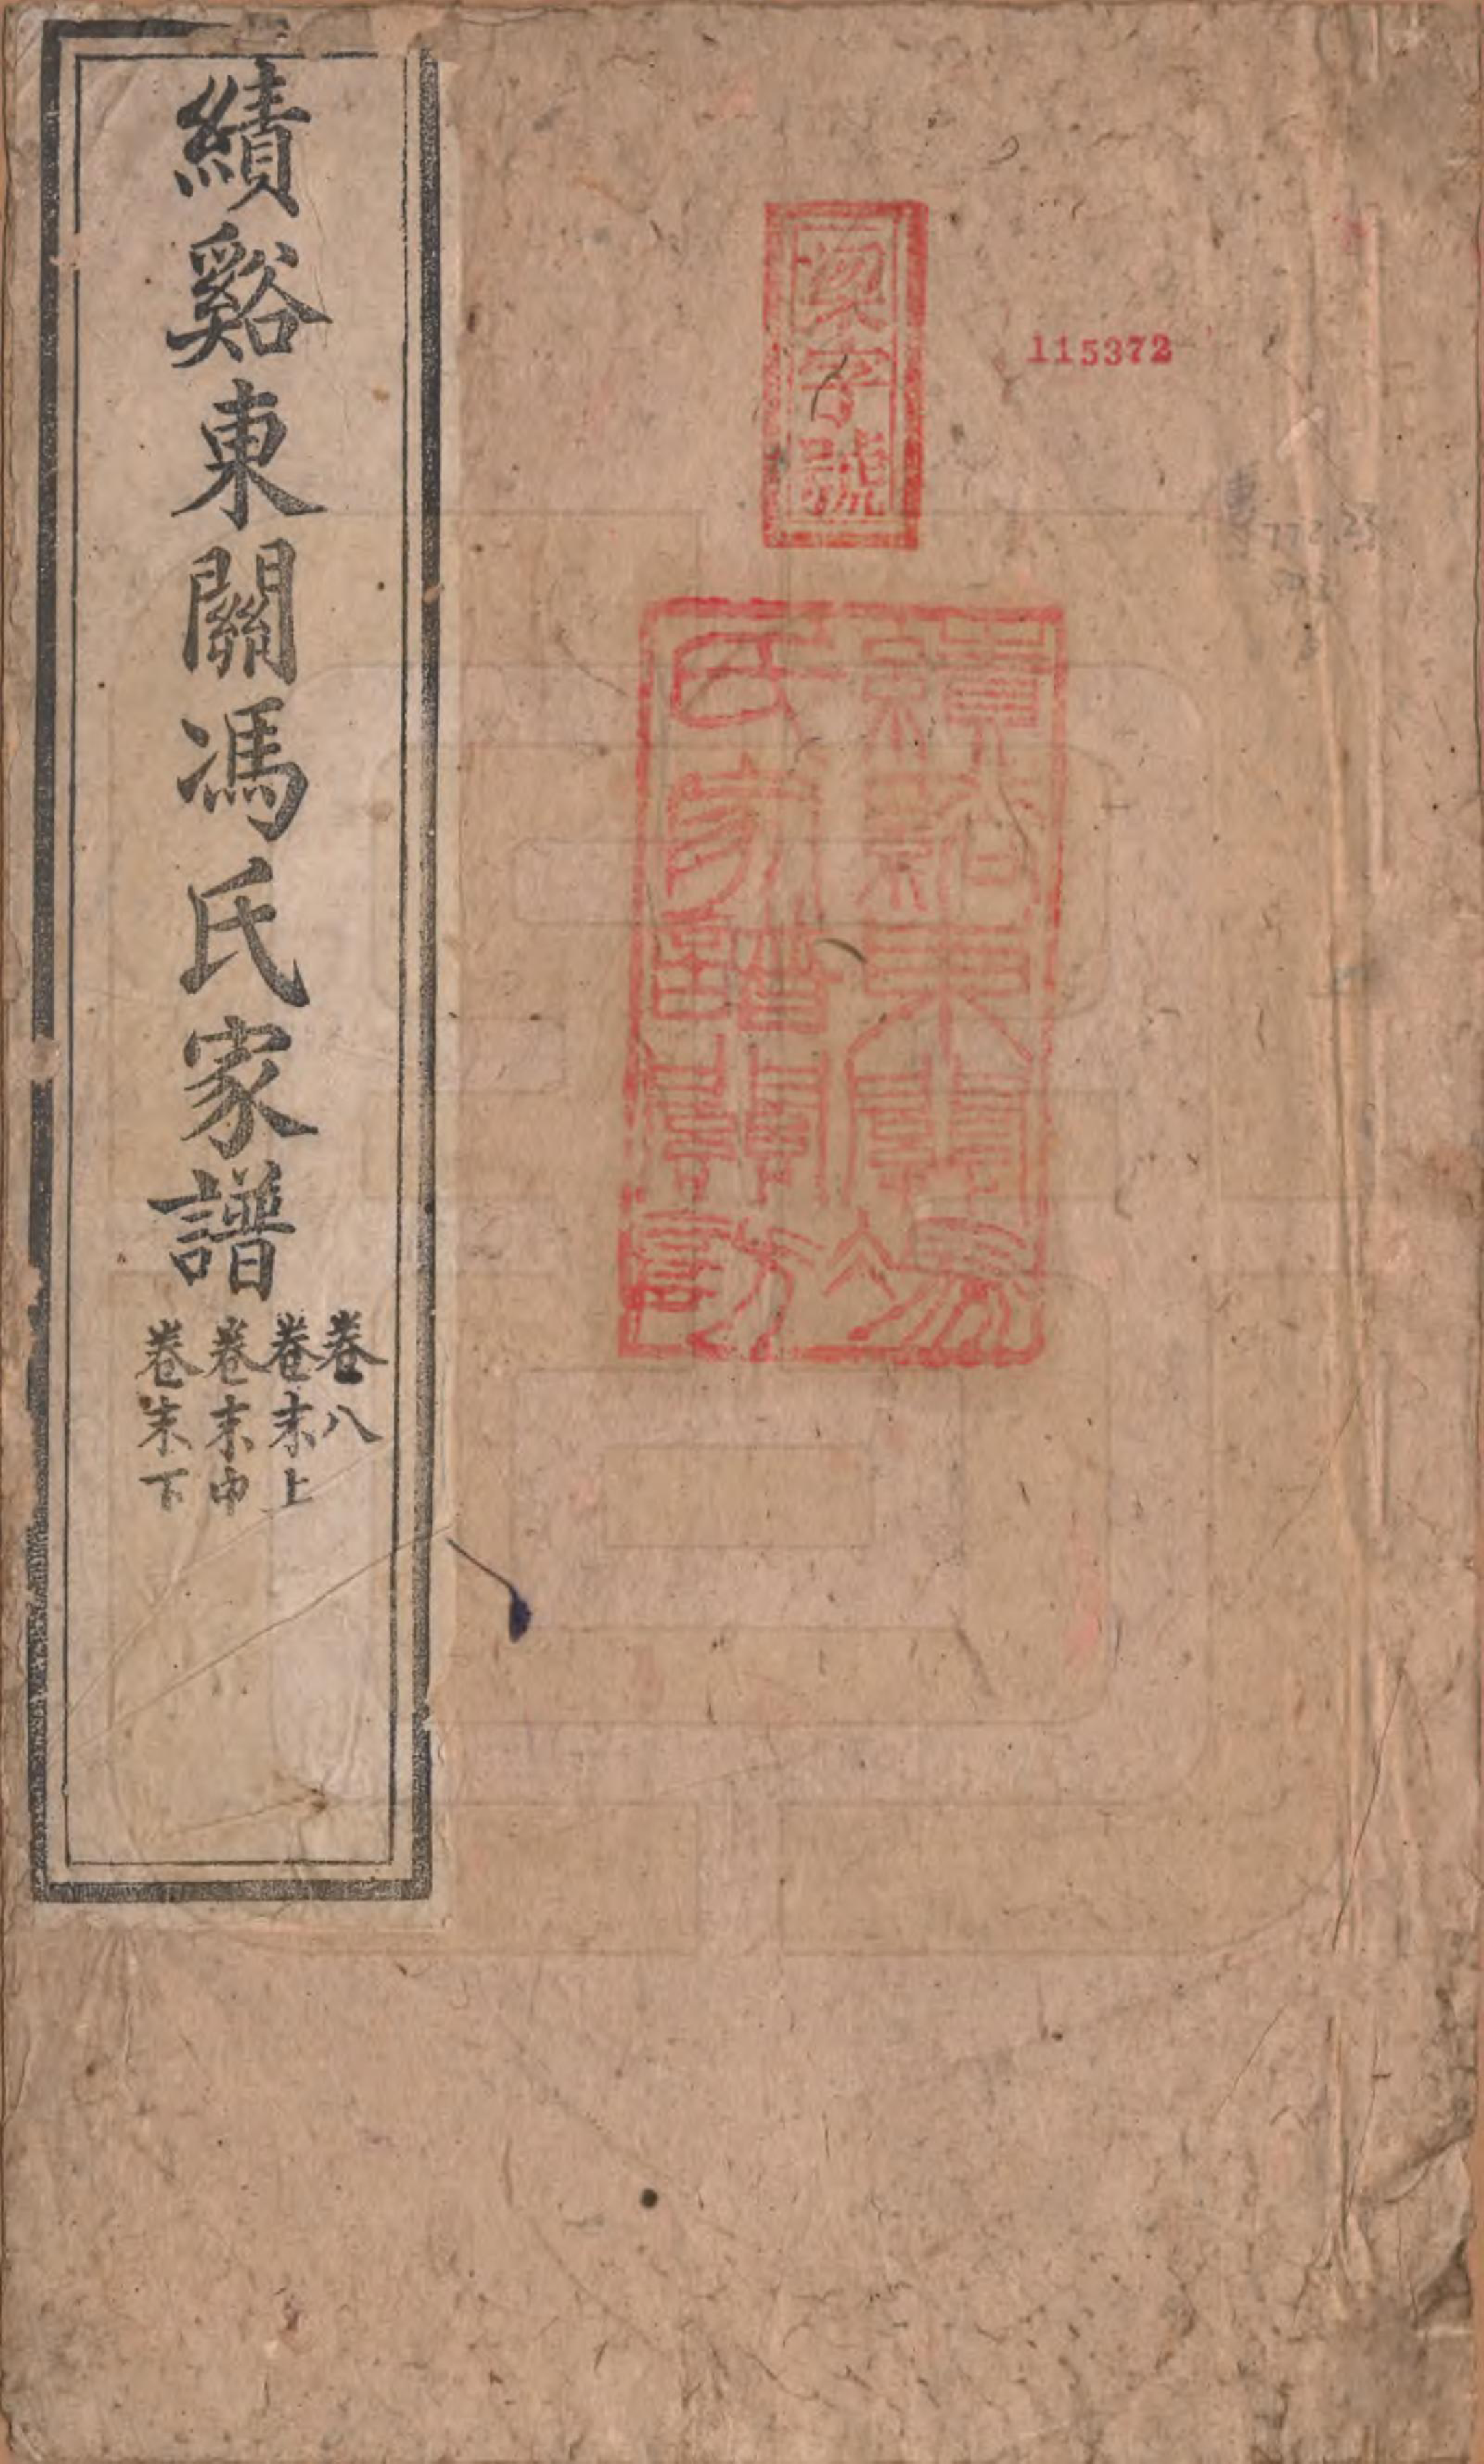 績谿東關馮氏家譜
卷八
卷末上
卷末中
卷末下
字號
115372
績谿東關馮
氏家譜關防